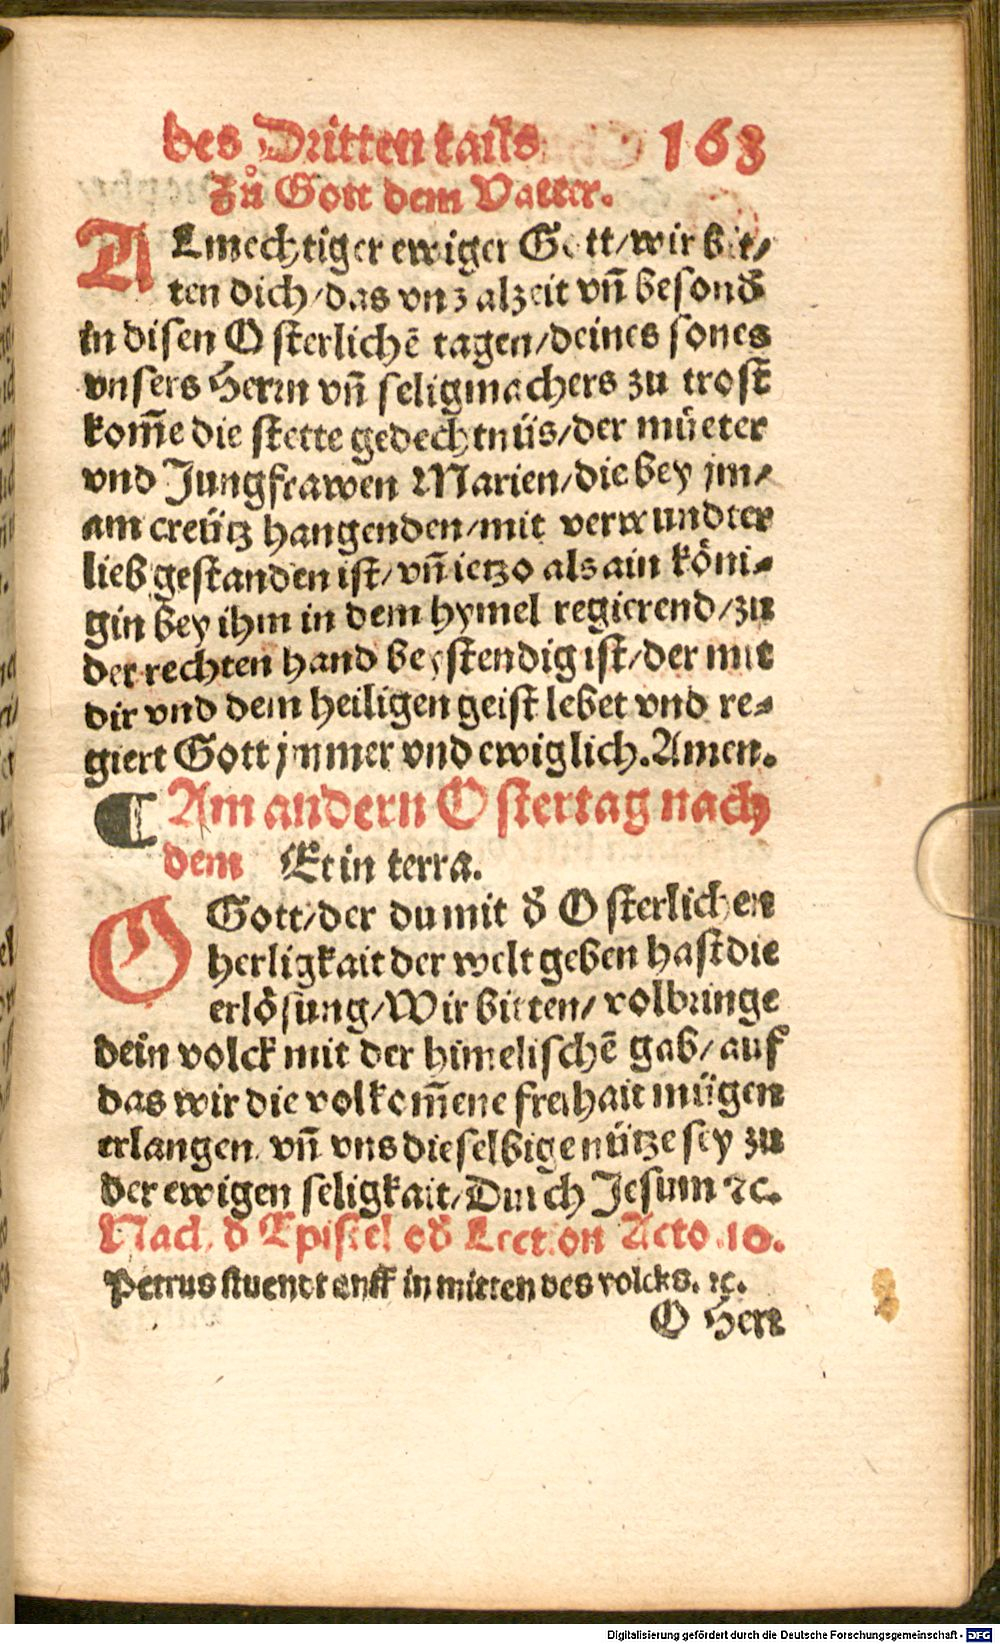 des Dritten tails 163
Zů Gott dem Vatter.
ALmechtiger ewiger Gott/wir bit⸗
ten dich/das vnz alzeit vn̄ besond̄
in disen Osterlichē tagen/deines sones
vnsers Herrn vn̄ seligmachers zu trost
kom̄e die stette gedechtnüs/der müeter
vnd Jungfrawen Marien/die bey jm⸗
am creütz hangenden/mit verwundter
lieb gestanden ist/vn̄ ietzo als ain köni⸗
gin bey ihm in dem hymel regierend/zu
der rechten hand beystendig ist/der mit
dir vnd dem heiligen geist lebet vnd re⸗
giert Gott jmmer vnd ewiglich. Amen.
¶ Am andern Ostertag nach
dem Et in terra.
O Gott/der du mit d̄ Osterlichen
herligkait der welt geben hast die
erlösung/Wir bitten/volbringe
dein volck mit der himelischē gab/auf
das wir die volkom̄ene freihait mügen
erlangen vn̄ vns dieselbige nütze sey zu
der ewigen seligkait/Durch Jesum ⁊c.
Nach d̄ Epistel od̄ Lection Acto. 10.
Petrus stuendt auff in mitten des volcks. ⁊c.
O Herr
Digitalisierung gefördert durch die Deutsche Forschungsgemeinschaft - DFG